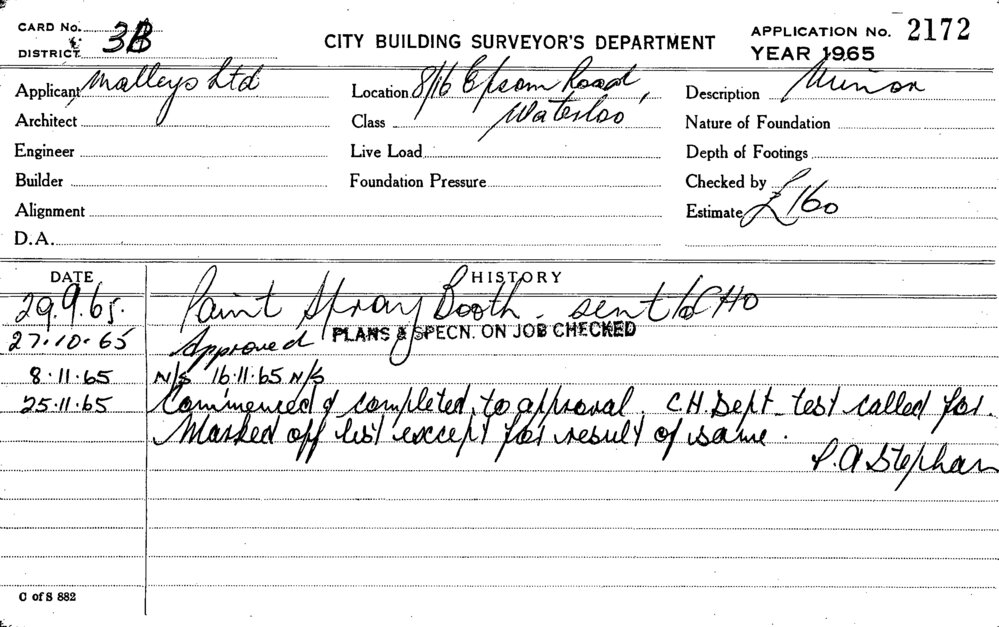 CARD No.
& DISTRICT. 3B
CITY BUILDING SURVEYOR'S DEPARTMENT
APPLICATION No. 2172
YEAR 1965
Applicant Malleys Ltd
Location 8/16 Epsom Road,
Description Minor
Architect
Class Waterloo
Nature of Foundation
Engineer
Live Load
Depth of Footings
Builder
Foundation Pressure
Checked by
Alignment
Estimate £160
D.A.
DATE HISTORY
29.9.65. Paint Spray Booth - sent to CHO
27.10.65 Approved PLANS & SPECN. ON JOB CHECKED
8.11.65 N/S 16.11.65 N/S
25.11.65 Commenced & completed to approval. C H Dept. test called for.
Marked off list except for result of same.
P. A Stephan
C of S 882